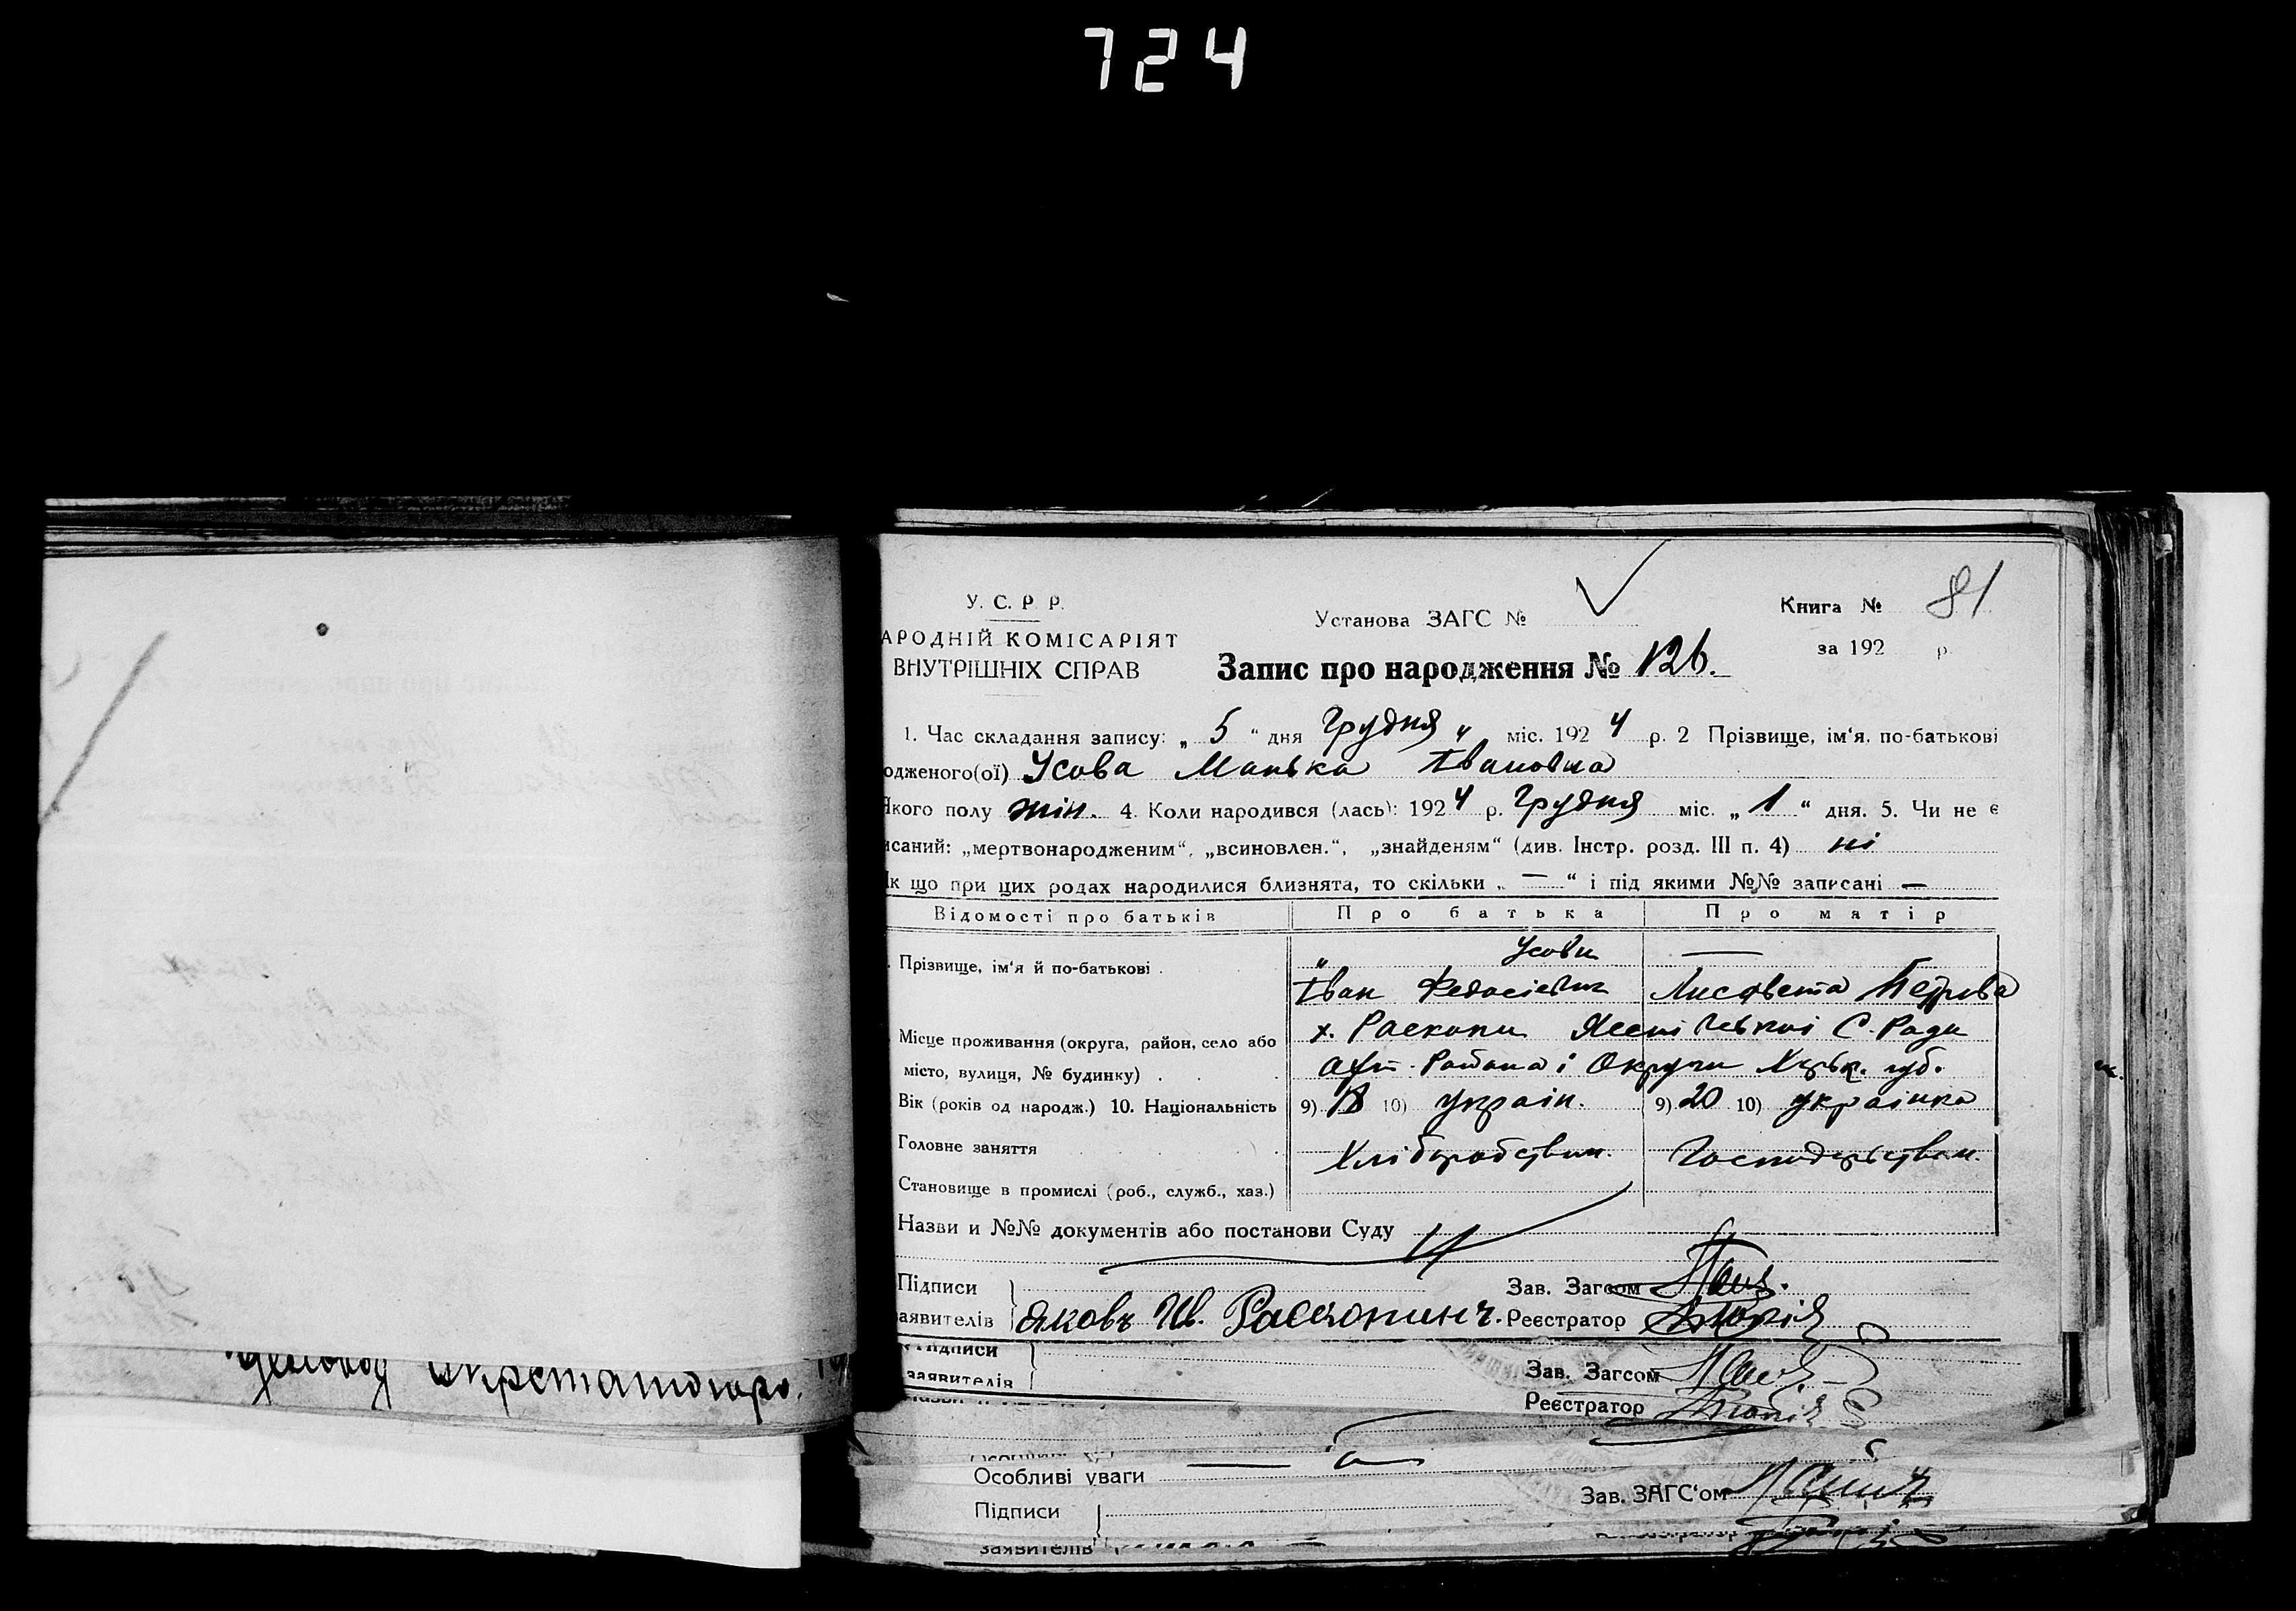 724
У. С. Р. Р.
АРОДНІЙ КОМІСАРІЯТ
ВНУТРІШНІХ СПРАВ
Установа ЗАГС №
Книга № 81
за 192 р.
Запис про народження № 126.
1. Час складання запису: „ 5 “ дня Грудня міс. 1924 р. 2 Прізвище, ім‘я. по-батькові
одженого(ої) Усова Манька Івановна
Якого полу жін. 4. Коли народився (лась): 1924 р. Грудня міс. „ 1 “ дня. 5. Чи не є
исаний: „мертвонародженим“, „всиновлен.“, „знайденям“ (див. Інстр. розд. III п. 4) ні
Як що при цих родах народилися близнята, то скільки „ — “ і під якими №№ записані —
Відомості про батьків Про батька Про матір
Прізвище, ім‘я й по-батькові . Усови —
Іван Федосієвич Лисавета Петрова
Місце проживання (округа, район, село або х. Раскопи С. Ради
місто, вулиця, № будинку) . . Охт. Району і Округи Харьк. губ.
Вік (років од народж.) 10. Національність 9) 18 10) україн. 9) 20 10) українка
Головне заняття Хліборобством. Господарством.
Становище в промислі (роб., служб., хаз.)
Назви и №№ документів або постанови Суду
Підписи Зав. Загсом
аявителів Яковъ Ив. Реєстратор
Підписи Зав. Загсом
заявителів Реєстратор
Особливі уваги
Підписи Зав. ЗАГС‘ом
заявителів